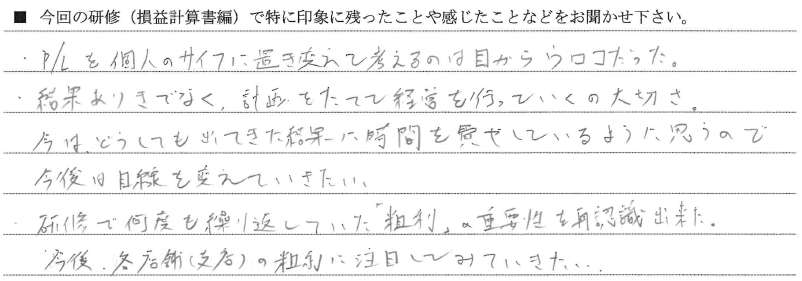 ■ 今回の研修（損益計算書編）で特に印象に残ったことや感じたことなどをお聞かせ下さい。
・P/Lを個人のサイフに置き変えて考えるのは目からウロコだった。
・結果ありきでなく、計画をたてて経営を行っていくの大切さ。
今は、どうしても出てきた結果に時間を費やしているように思うので
今後は目線を変えていきたい。
・研修で何度も繰り返していた「粗利」の重要性を再認識出来た。
今後、各店舗(支店)の粗利に注目してみていきたい。